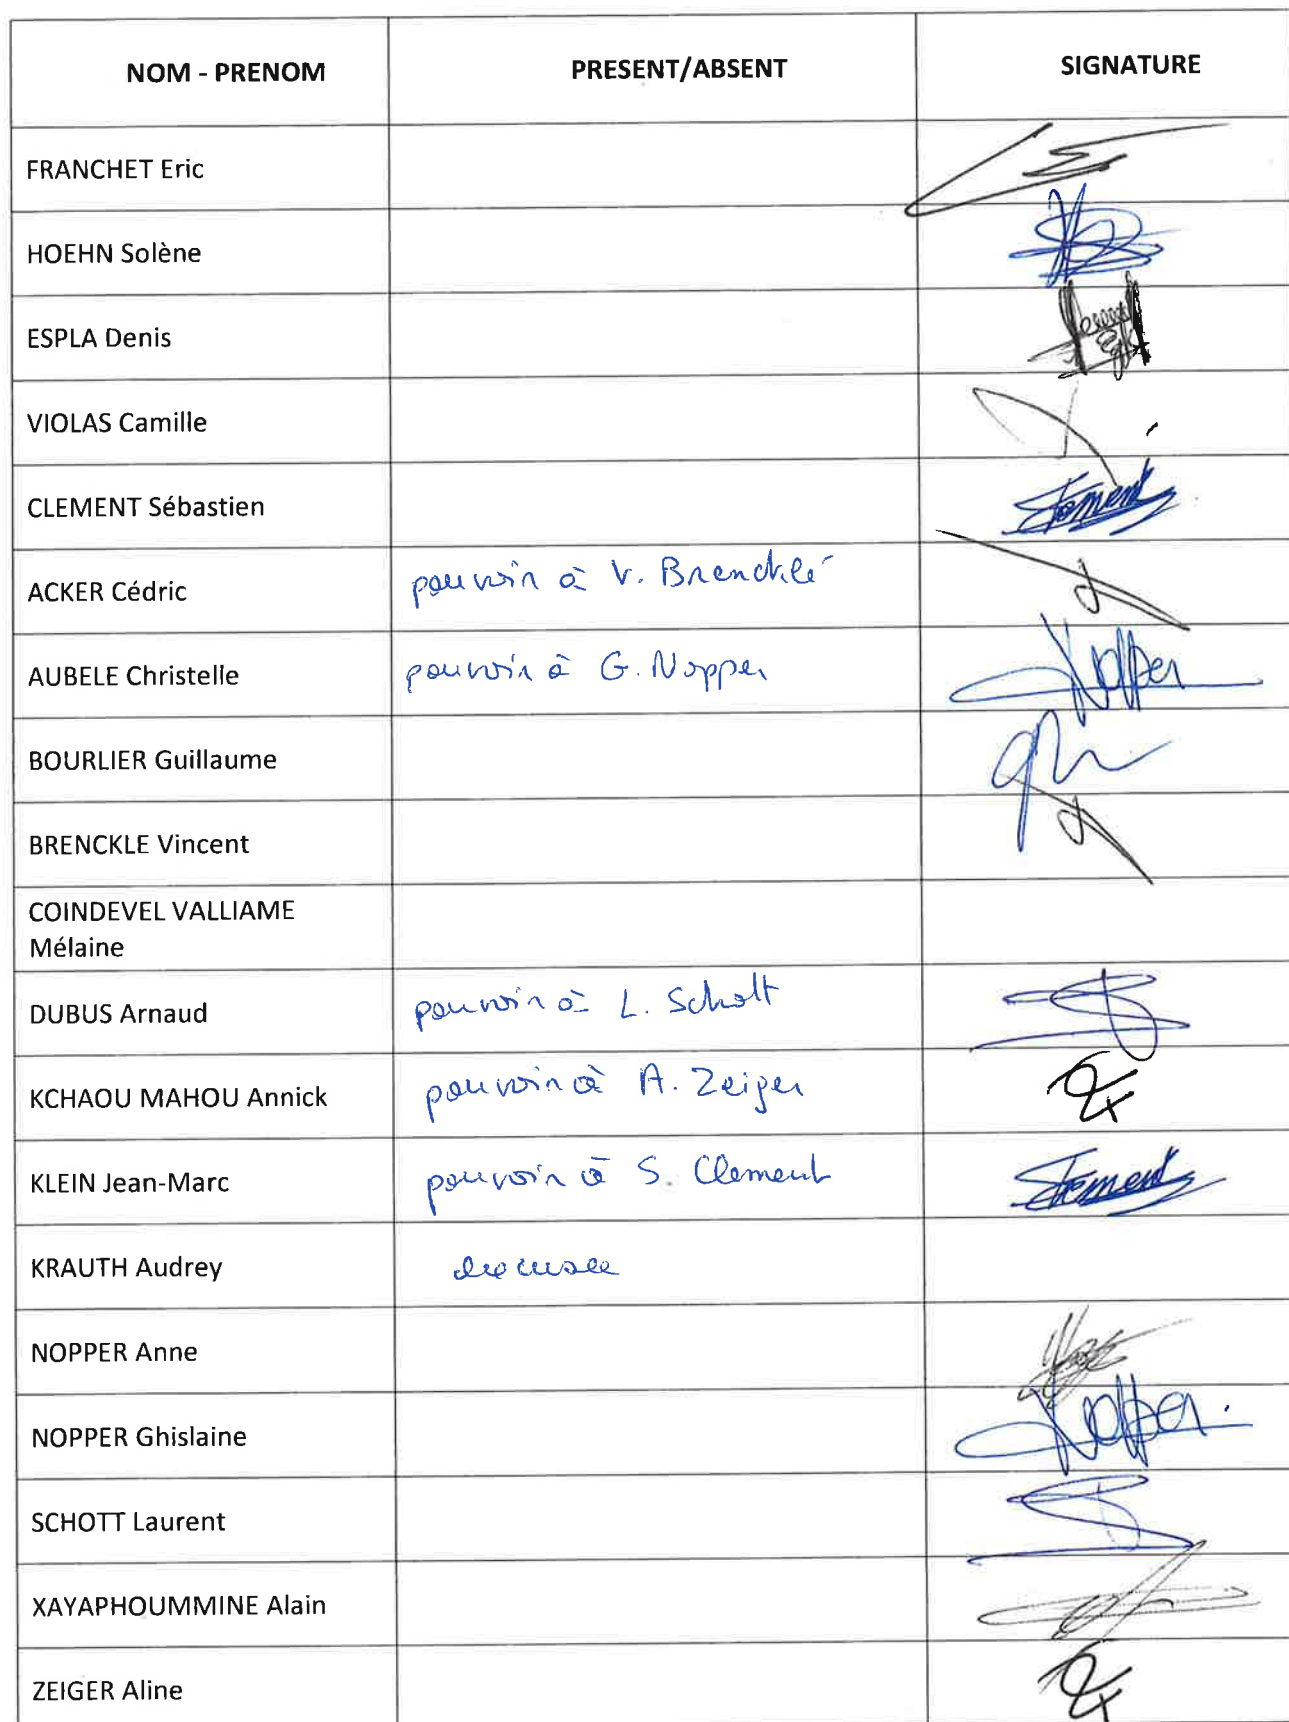 NOM - PRENOM PRESENT/ABSENT SIGNATURE
FRANCHET Eric
HOEHN Solène
ESPLA Denis
VIOLAS Camille
CLEMENT Sébastien
ACKER Cédric pouvoir à V. Brencklé
AUBELE Christelle pouvoir à G. Nopper Nopper
BOURLIER Guillaume
BRENCKLE Vincent
COINDEVEL VALLIAME
Mélaine
DUBUS Arnaud pouvoir à L. Schott
KCHAOU MAHOU Annick pouvoir à A. Zeiger
KLEIN Jean-Marc pouvoir à S. Clement
KRAUTH Audrey
NOPPER Anne
NOPPER Ghislaine Nopper
SCHOTT Laurent
XAYAPHOUMMINE Alain
ZEIGER Aline